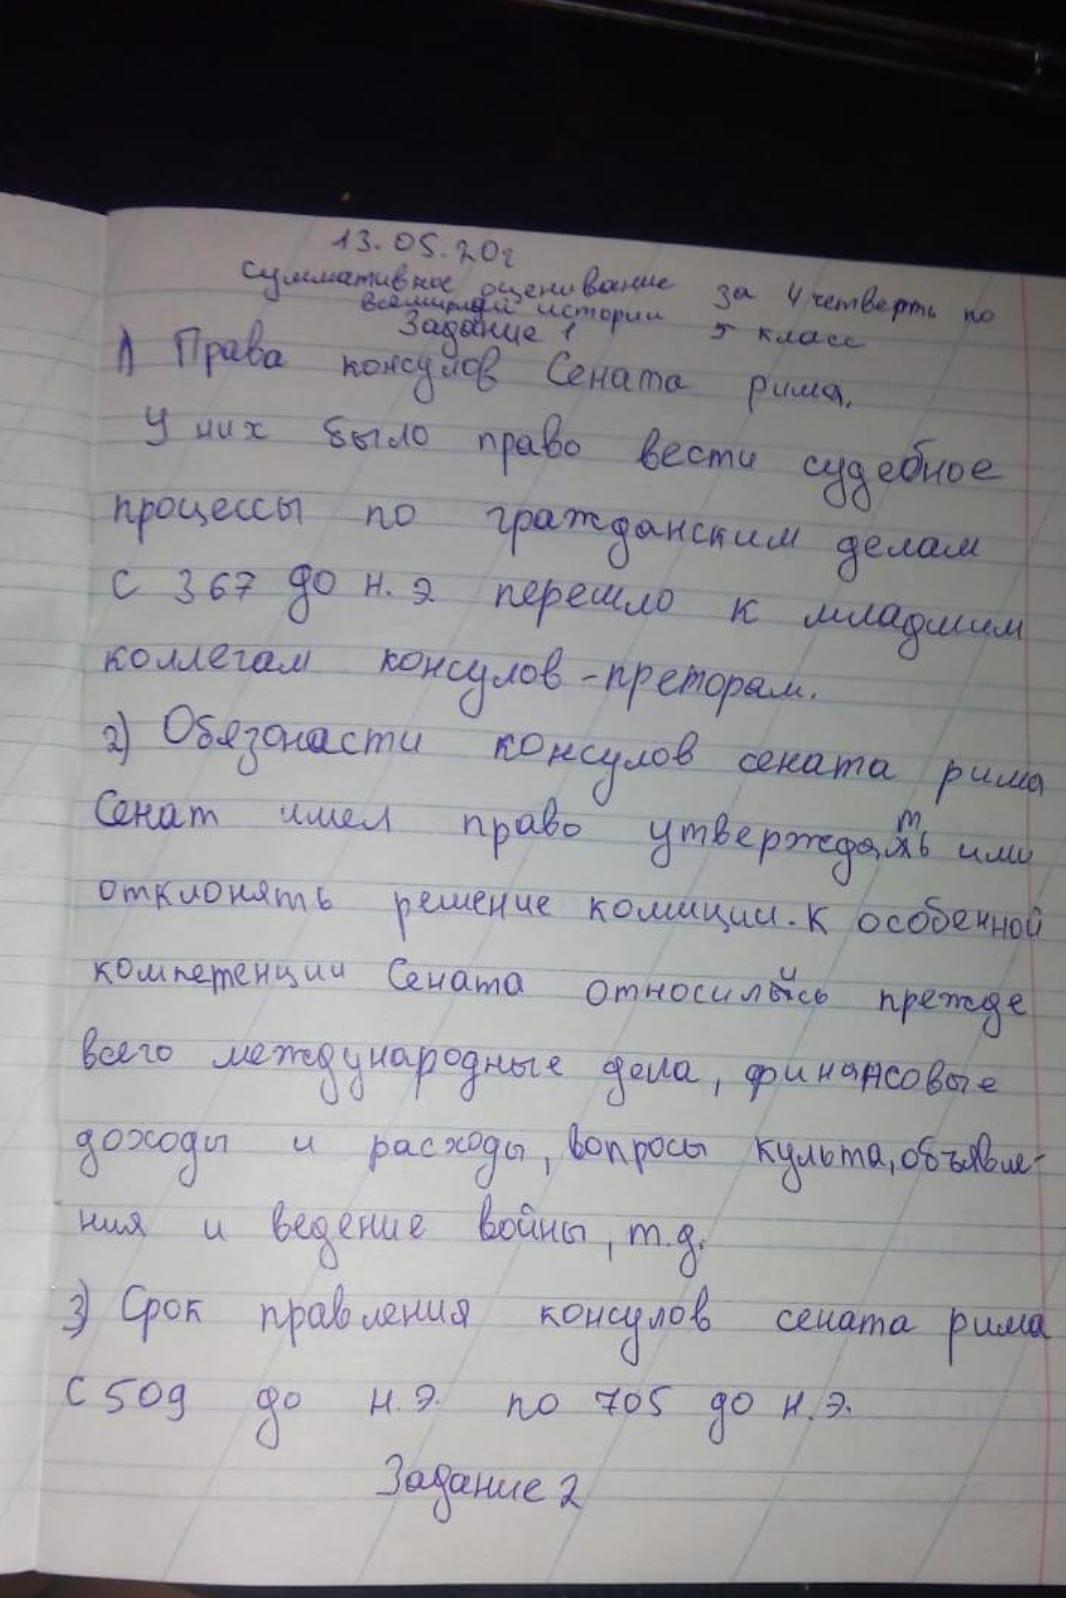 13.05.20г
Суммативное оценивание за 4 четверть по
всемирной истории 5 класс
Задание 1
1) Права консулов Сената рима.
У них было право вести судебное
процессы по гражданским делам
с 367 до н.э перешло к младшим
коллегам консулов - преторам.
2) Обязонасти консулов сената рима
Сенат имел право утверждать или
отклонять решение комиции. К особенной
компетенции Сената относились прежде
всего международные дела, финансовые
доходы и расходы, вопросы культа, объявле-
ния и ведение войны, т.д.
3) Срок правления консулов сената рима
С 509 до н.э. по 705 до н.э.
Задание 2